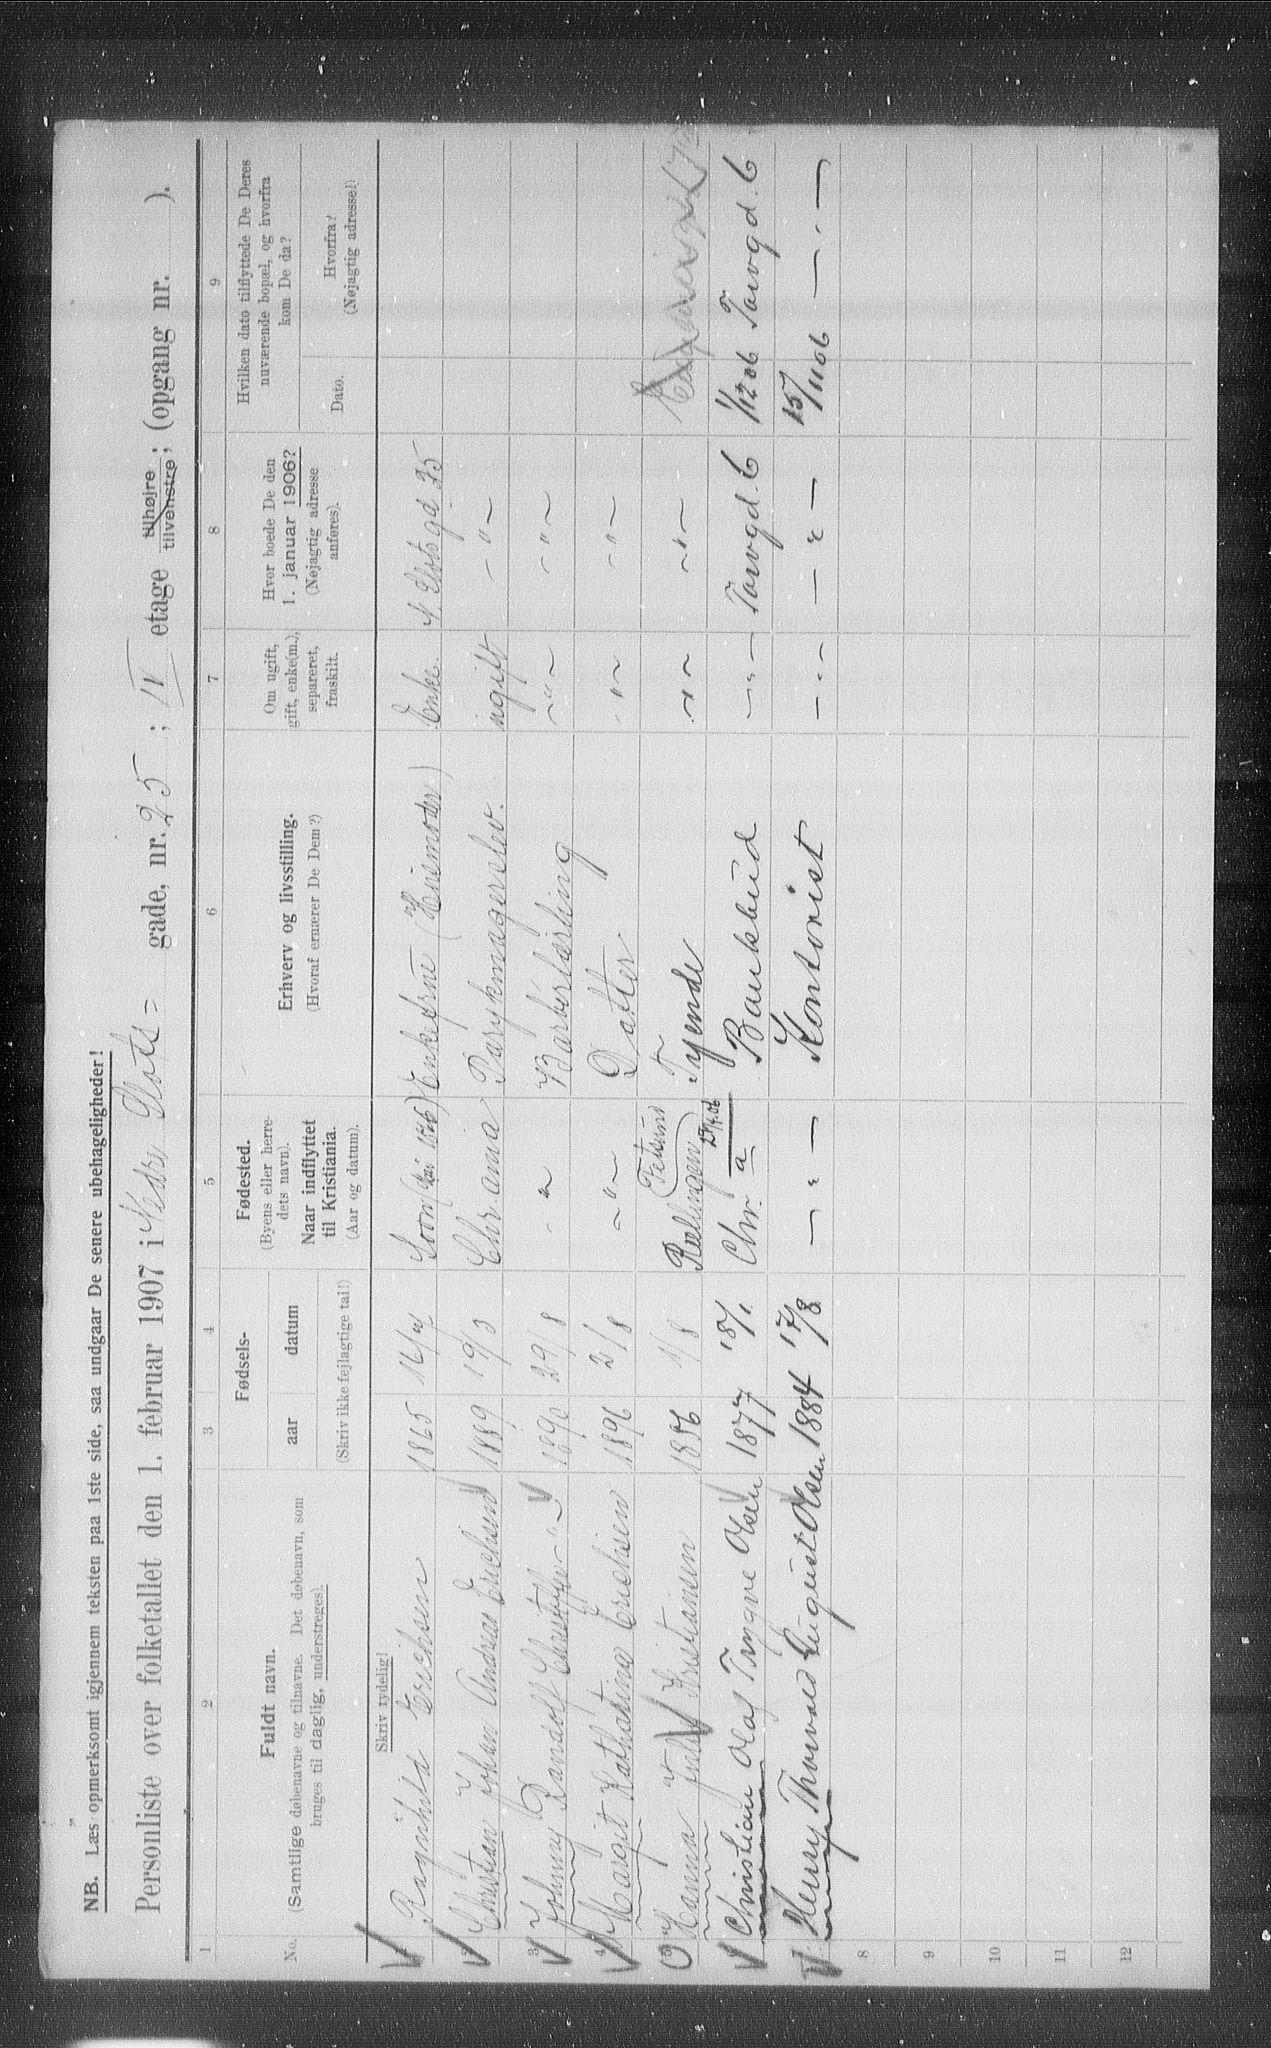 NB. Læs opmerksomt igjennem teksten paa 1ste side, saa undgaar De senere ubehageligheder!
Personliste over folketallet den 1. februar 1907 i Nedre Slots= gade, nr. 25 ; IV etage tilhøjre tilvenstre; (opgang nr. ).
1 2 3 4 5 6 7 8 9
No.
Fuldt navn.
(Samtlige døbenavne og tilnavne. Det døbenavn, som
bruges til daglig, understreges).
Fødsels-
aar datum
(Skriv ikke fejlagtige tal!)
Fødested.
(Byens eller herre-
dets navn).
Naar indflyttet
til Kristiania.
(Aar og datum).
Erhverv og livsstilling.
(Hvoraf ernærer De Dem?)
Om ugift,
gift, enke(m.),
separeret,
fraskilt.
Hvor boede De den
1. januar 1906?
(Nøjagtig adresse
anføres).
Hvilken dato tilflyttede De Deres
nuværende bopæl, og hvorfra
kom De da?
Dato.
Hvorfra?
(Nøjagtig adresse!)
Skriv tydelig!
Ragnhild Erichsen 1865 Soon Enkefrue (Husmoder) Enke. N. Slotsgd. 25
2 Christian Johan Andreas Erichsen 1889 19/3 Chr.ania Parykmagerelev. ugift — " —
3 Johnny Randolf Christopher — " — 1890 29/8 - " - Barberlærling — " — — " —
4 Margit Katharina Erichsen 1896 2/8 — " — Datter - " — — " —
5 Hanna Julie Kristiansen 1886 1/8 Rællingen (Fetsund Tjende — " — — " —
Christian Olaf Trygve Olsen 1877 18/1 Chr. a 27/4.06 Bankbud — " — Torvgd. 6 1/12 06 Torvgd. 6
Henry Thorvald August Olsen 1884 17/8 — " — Kontorist — " — — " — 15/11 06 — " —
8
9
10
11
12